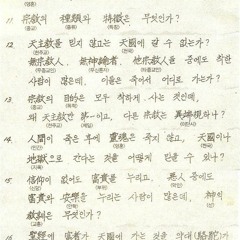 (영혼)
11. 宗敎의 種類와 特徵은 무엇인가?
(종교) (종류) (특징)
12. 天主敎를 믿지 않고는 天國에 갈 수 없는가?
(천주교) (천국)
無宗敎人, 無神論者, 他宗敎人들 중에도 착한
(무종교인) (무신론자) (타종교인)
사람이 많은데, 이들은 죽어서 어디로 가는가?
13. 宗敎의 目的은 모두 착하게 사는 것인데,
(종교) (목적)
왜 天主敎만 第一이고, 다른 宗敎는 異端視하나?
(천주교) (제일) (종교) (이단시)
14. 人間이 죽은 후에 靈魂은 죽지 않고, 天國이나
(인간) (영혼) (천국)
地獄으로 간다는 것을 어떻게 믿을 수 있나?
(지옥)
15. 信仰이 없어도 富貴를 누리고, 惡人 중에도
(신앙) (부귀) (악인)
富貴와 安樂을 누리는 사람이 많은데, 神의
(부귀) (안락) (신)
敎訓은 무엇인가?
(교훈)
16. 聖經에 富者가 天國에 가는 것을 약대(駱駝)가